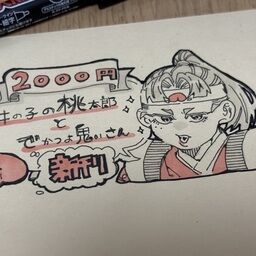 2000円
女の子の桃太郎
と
でかつよ鬼いさん
新刊